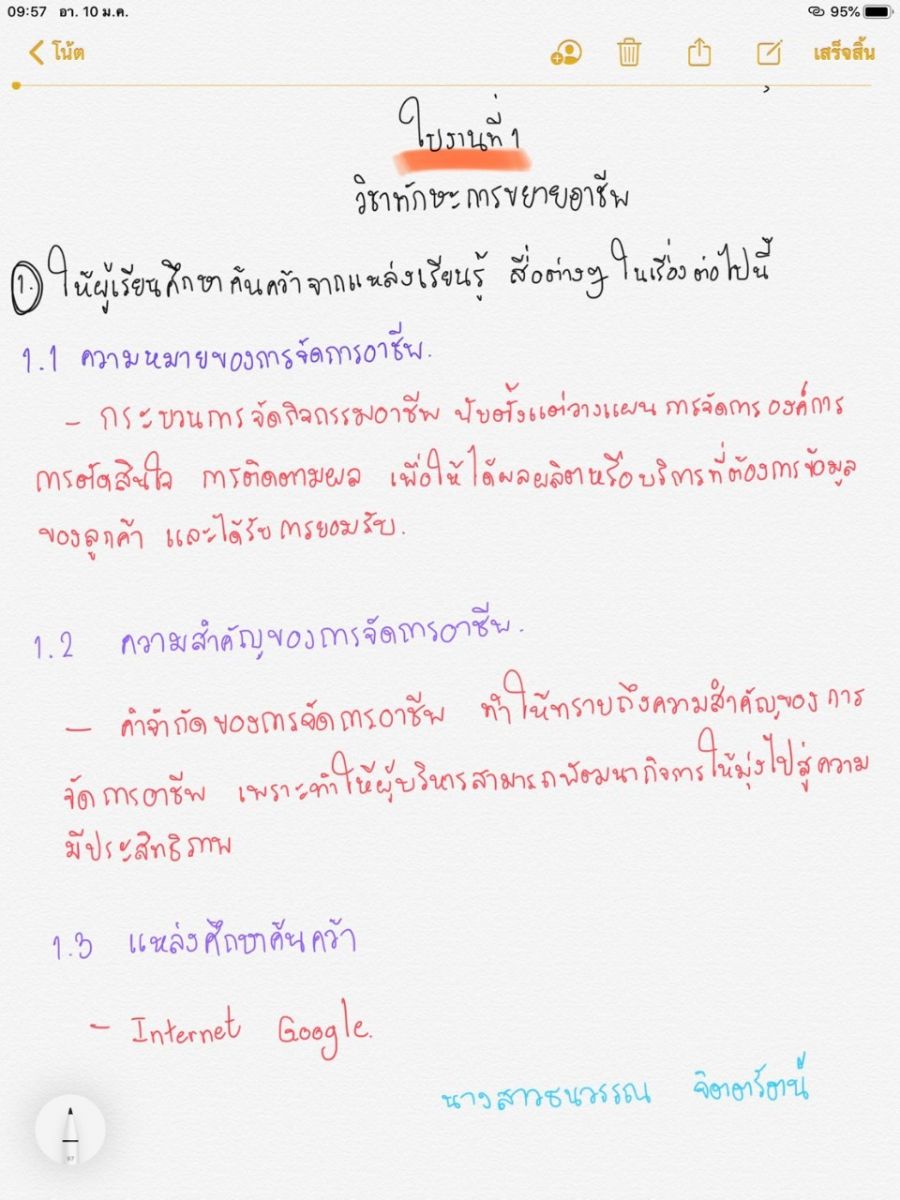 09:57 อา. 10 ม.ค. 95%
โน้ต เสร็จสิ้น
ใบงานที่ 1
วิชาทักษะการขยายอาชีพ
1. ให้ผู้เรียนศึกษาค้นคว้าจากแหล่งเรียนรู้ สื่อต่างๆ ในเรื่องต่อไปนี้
1.1 ความหมายของการจัดการอาชีพ.
- กระบวนการจัดกิจกรรมอาชีพ นับตั้งแต่วางแผน การจัดการ องค์การ
การตัดสินใจ การติดตามผล เพื่อให้ได้ผลผลิตหรือบริการที่ต้องการข้อมูล
ของลูกค้า และได้รับการยอมรับ.
1.2 ความสำคัญของการจัดการอาชีพ.
- คำจำกัดของการจัดการอาชีพ ทำให้ทราบถึงความสำคัญของการ
จัดการอาชีพ เพราะทำให้ผู้บริหารสามารถพัฒนากิจการให้มุ่งไปสู่ความ
มีประสิทธิภาพ
1.3 แหล่งศึกษาค้นคว้า
- Internet Google.
นางสาวธนวรรณ
97